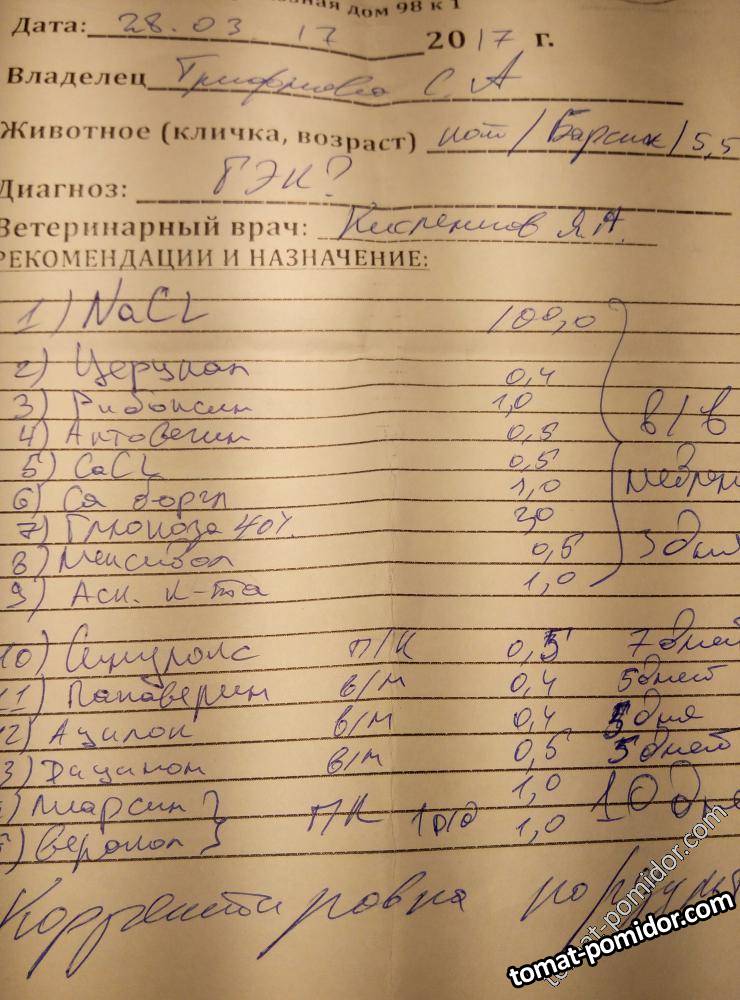 дом 98 к 1
Дата: 28.03 17 2017 г.
Владелец С.А
Животное (кличка, возраст) кот/Барсик/5,5
Диагноз: ГЭК?
Ветеринарный врач: Я.А.
РЕКОМЕНДАЦИИ И НАЗНАЧЕНИЕ:
1) NaCL 100,0
2) Церукал 0,4
3) Рибоксин 1,0
4) Актовегин 0,5 в/в
5) CaCL 0,5
6) Са боргл 1,0
7) Глюкоза 40% 2,0
8) Мексидол 0,5 3 дня
9) Аск. к-та 1,0
10) Синулокс п/к 0,5 7 дней
11) Папаверин в/м 0,4 5 дней
12) Ацилок в/м 0,4 дня
3) Дицинон в/м 0,5 5 дней
Лиарсин 1,0
Веракол } п/к 1,0 10 дне
Корректировка по
tomat-pomidor.com
tomat-pomidor.com